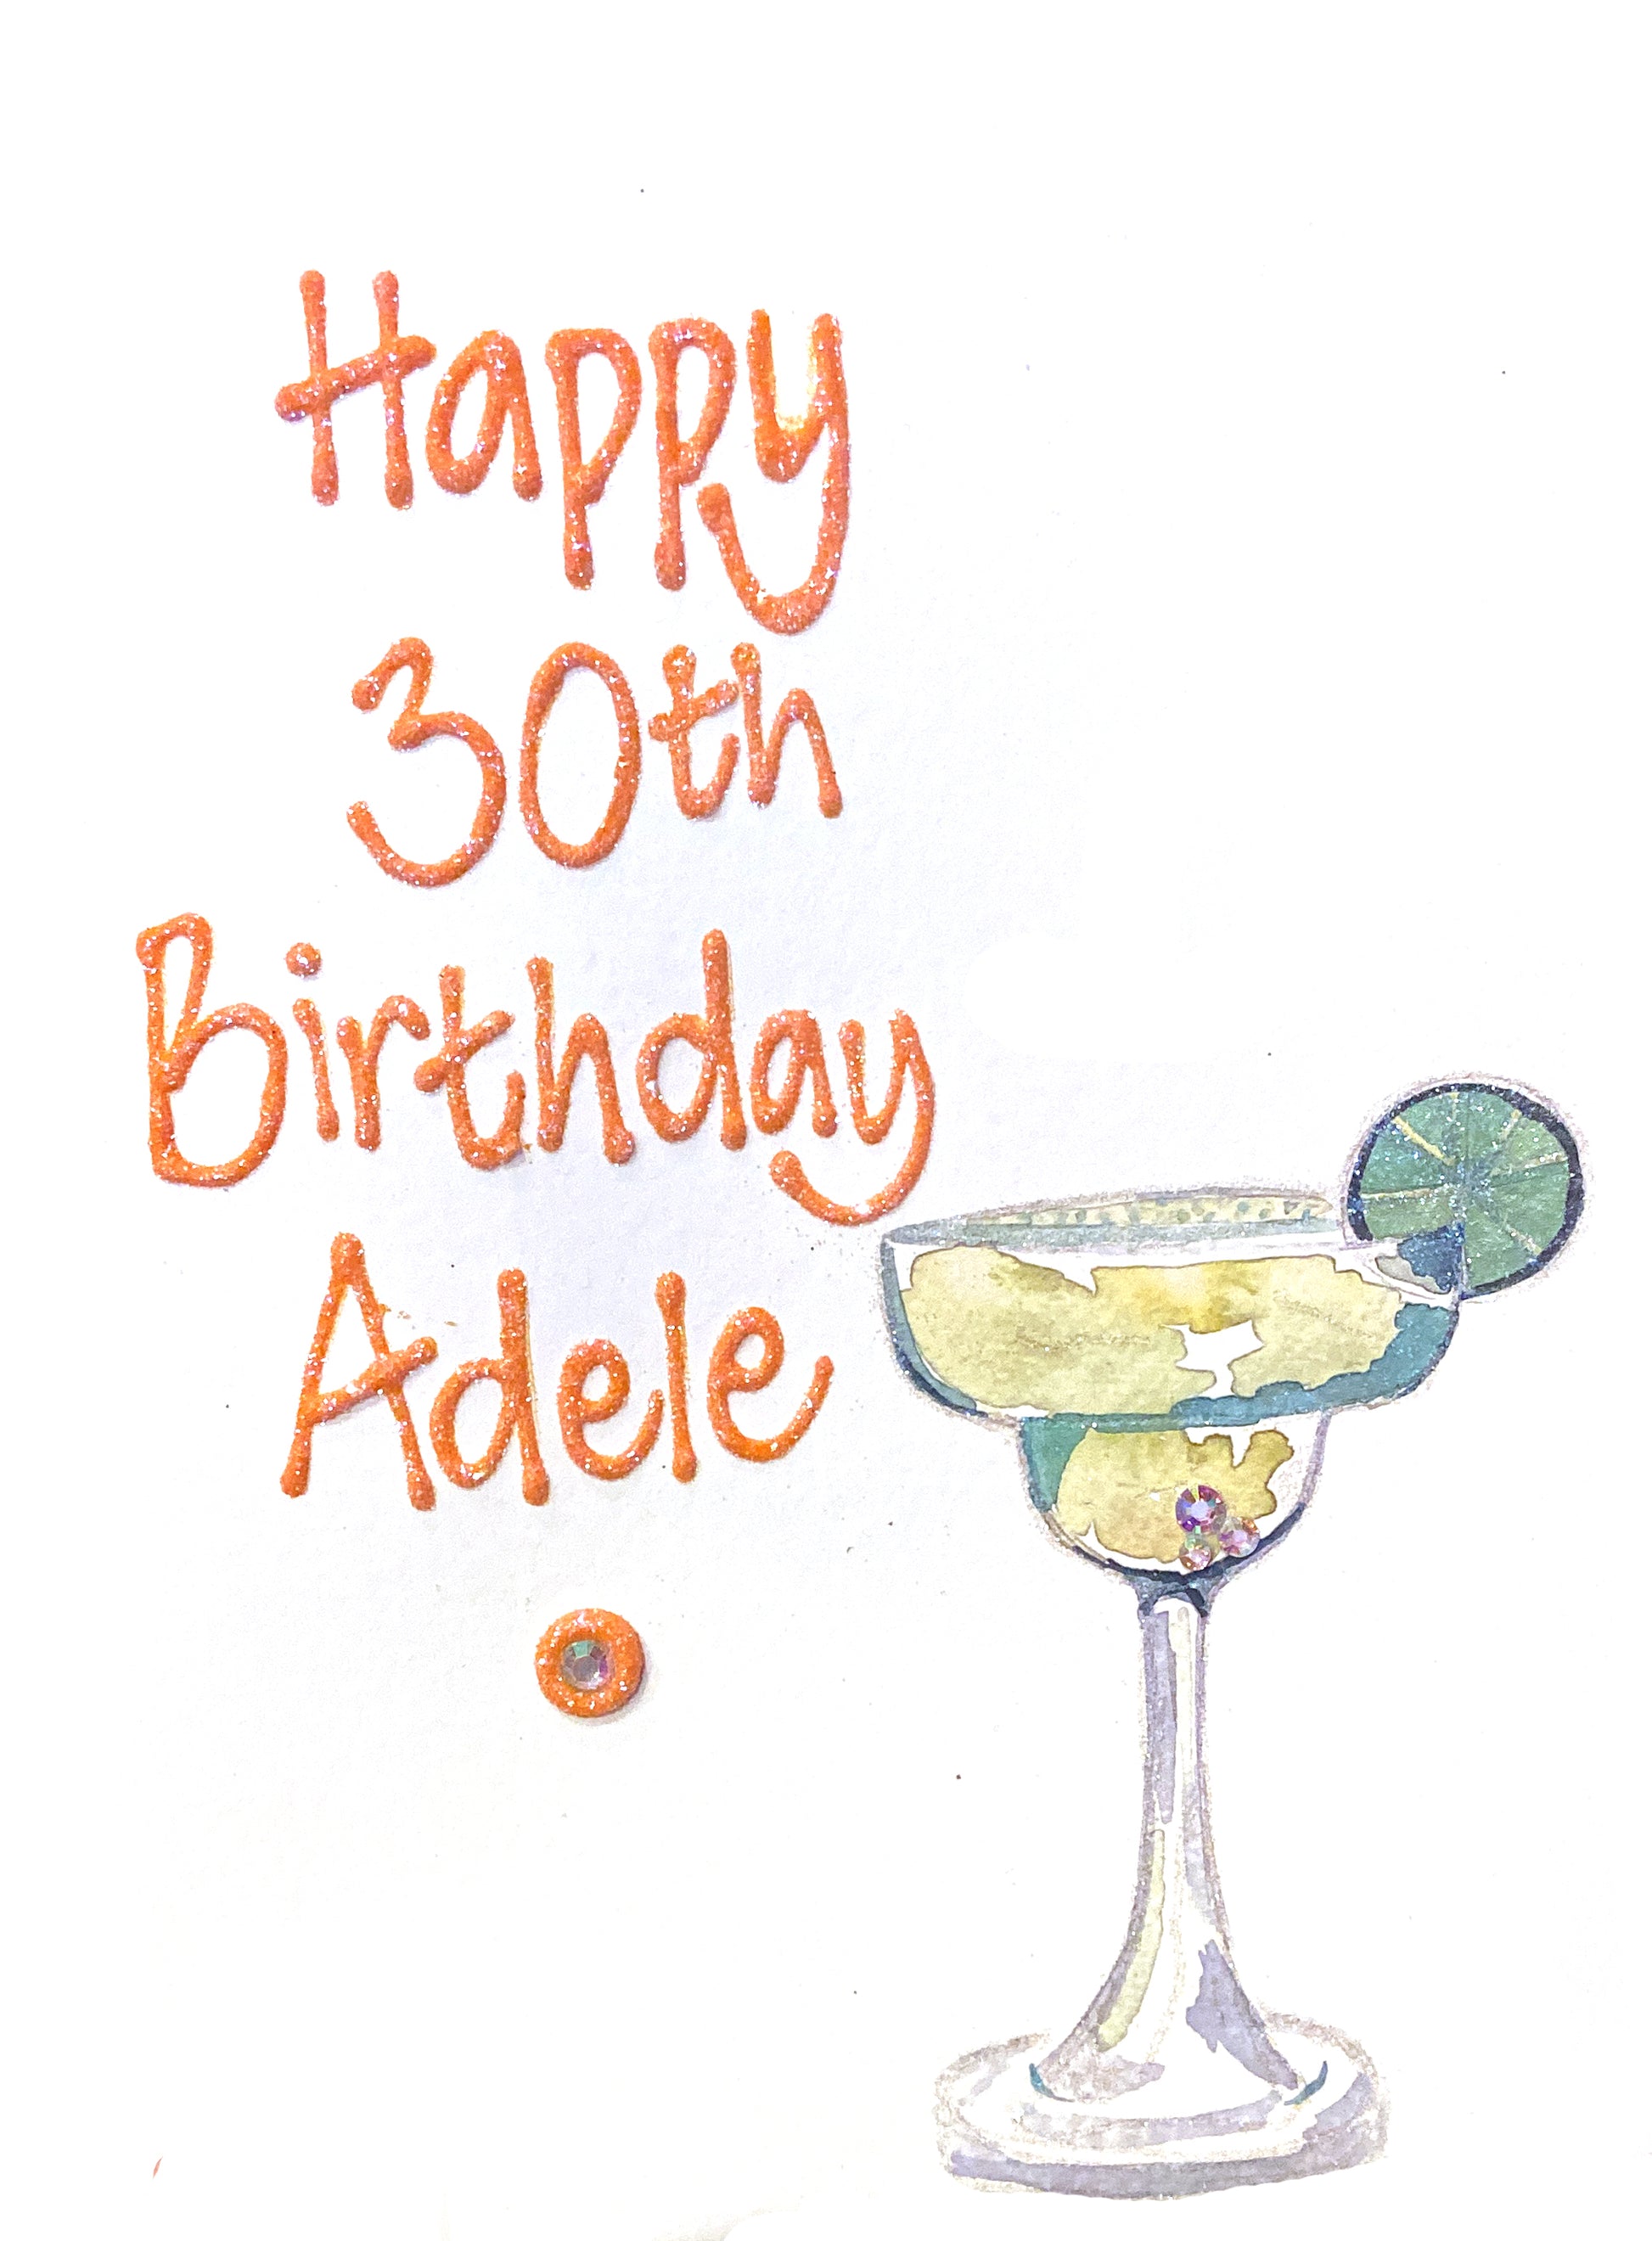 Happy
30th
Birthday
Adele